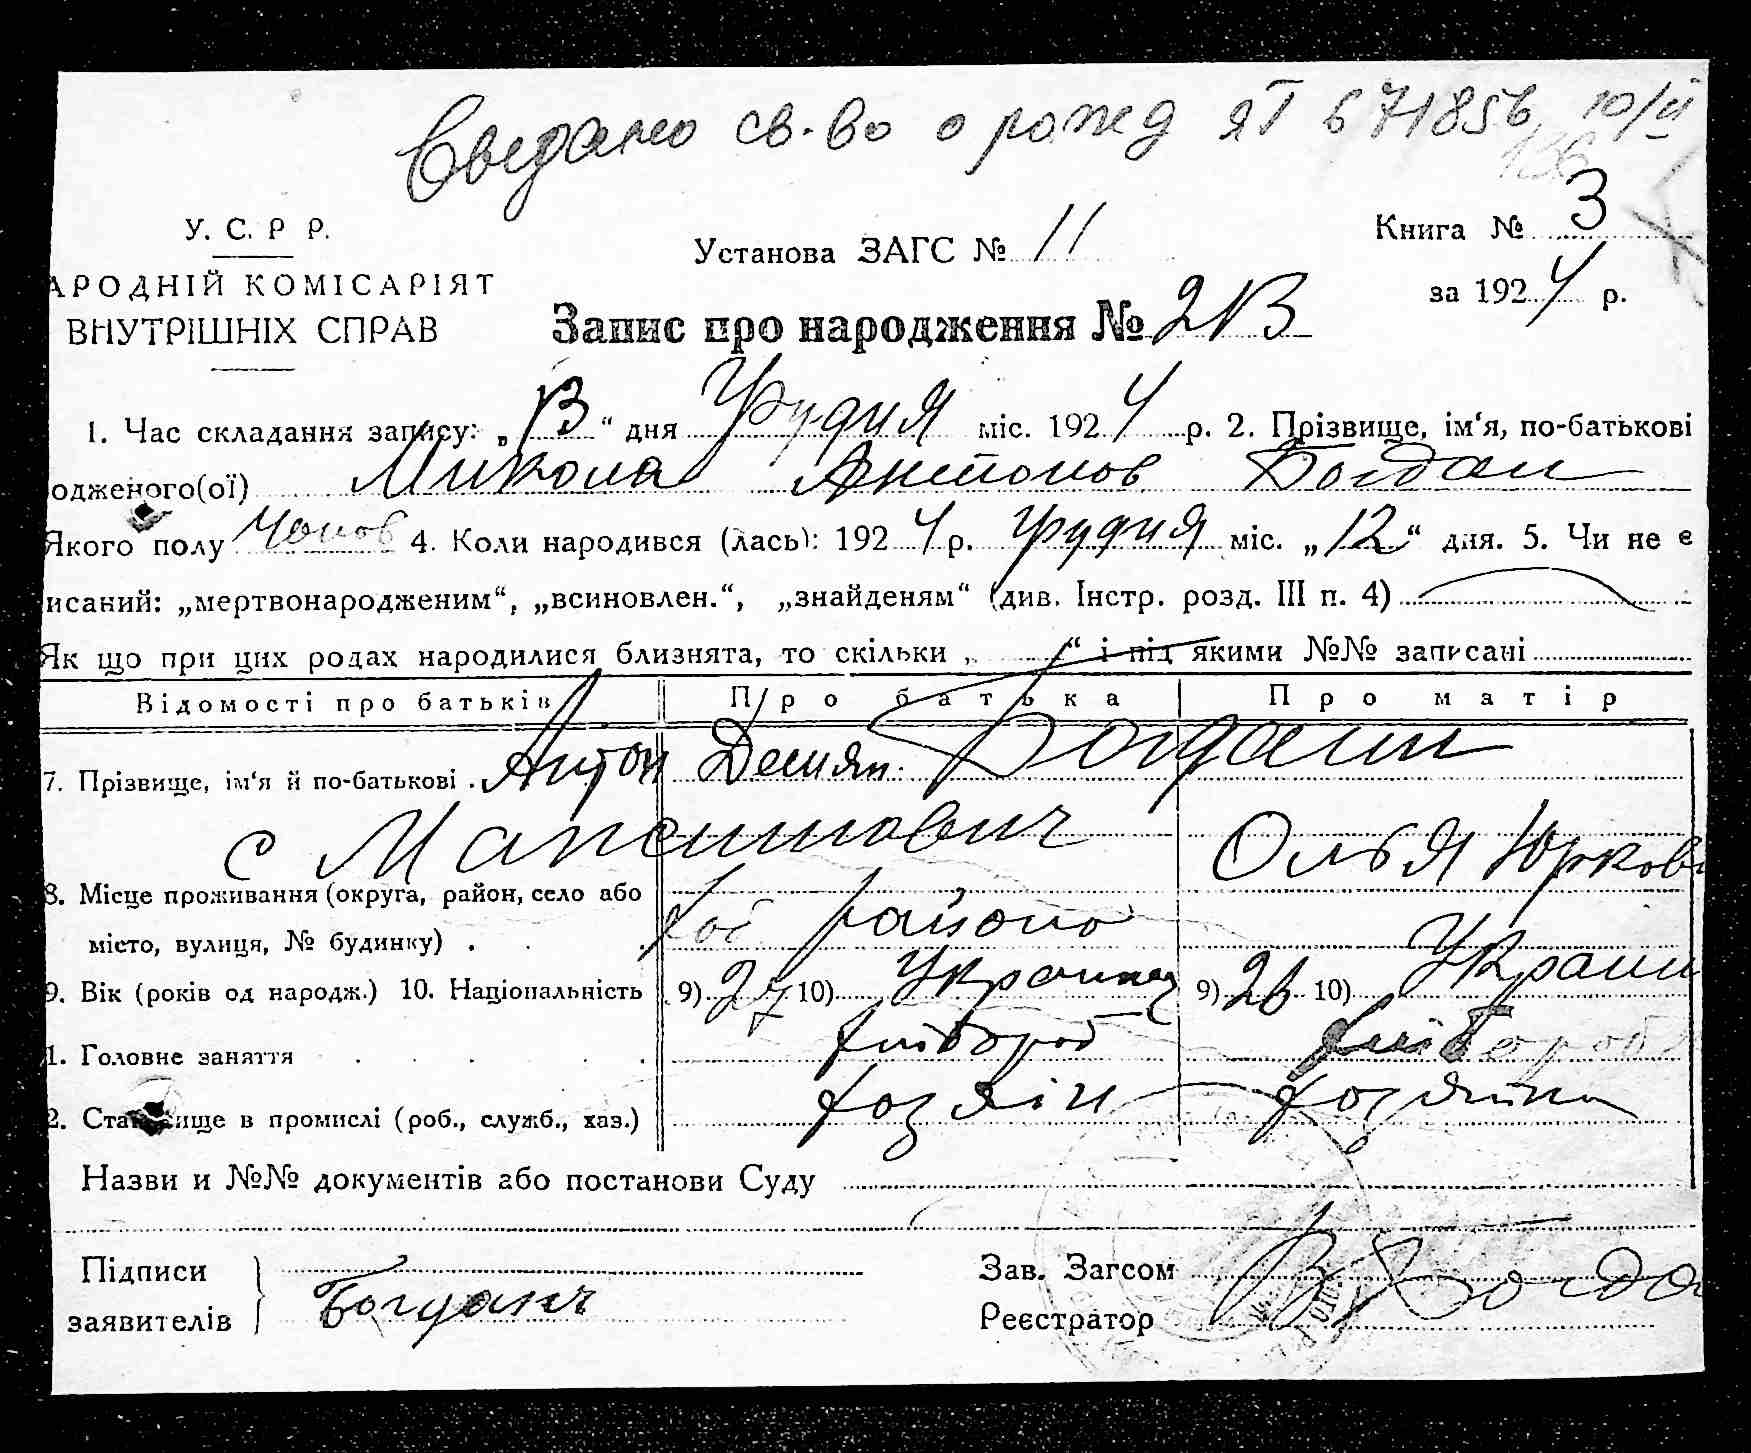 Св-во о рожд ЯТ 671856 10/VI
У. С. Р Р.
АРОДНІЙ КОМІСАРІЯТ
ВНУТРІШНІХ СПРАВ
Установа ЗАГС № 11
Книга № 3
за 1924 р.
Запис про народження № 213
1. Час складання запису: „13“ дня Грудня міс. 1924 р. 2. Прізвище, ім‘я, по-батькові
одженого(ої) Микола Антонов Богдан
Якого полу Чолов 4. Коли народився (лась): 1924 р. Грудня міс. „12“ дня. 5. Чи не є
исаний: „мертвонародженим“, „всиновлен.“, „знайденям“ (див. Інстр. розд. III п. 4)
Як що при цих родах народилися близнята, то скільки „ “ і під якими №№ записані
Відомості про батьків Про батька Про матір
7. Прізвище, ім‘я й по-батькові . Антон Демян. Богдан
с Максимович Ольга Юркові
8. Місце проживання (округа, район, село або
місто, вулиця, № будинку) . . району
9. Вік (років од народж.) 10. Національність 9) 27 10) Украинец 9) 26 10) Украин
1. Головне заняття . . . . . хлібороб хлібороб
2. Становище в промислі (роб., служб., хаз.) хозяін хозяйка
Назви и №№ документів або постанови Суду
Підписи
заявителів } Богданч
Зав. Загсом
Реєстратор В Богда